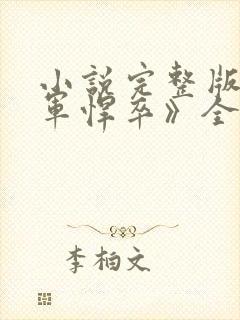 小説完整版
軍悍卒》全
李柏文